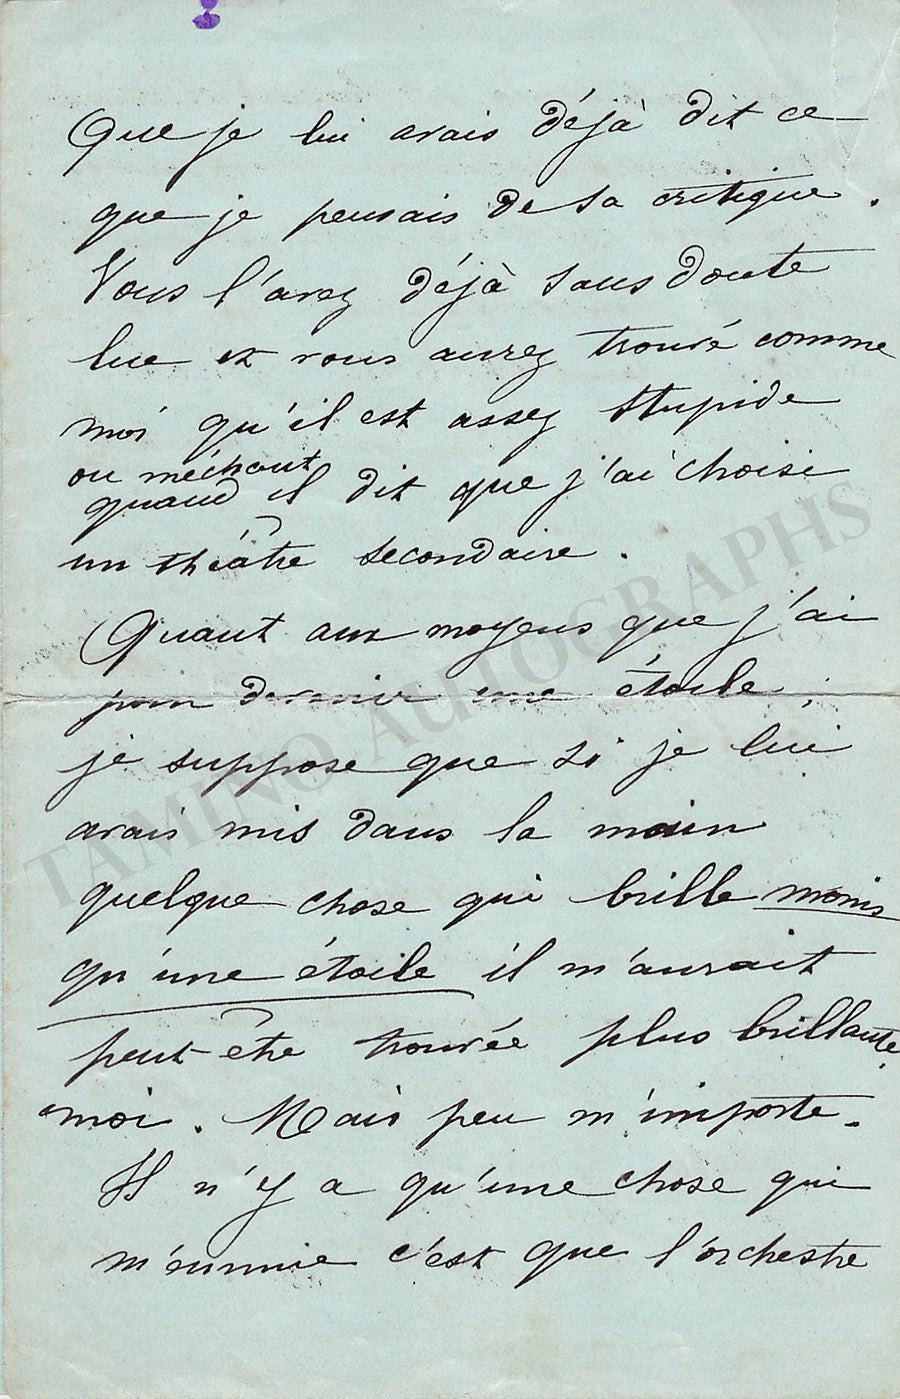 Que je lui avais déjà dit ce
que je pensais de sa critique.
Vous l'avez déjà sans doute
lue et vous aurez trouvé comme
moi qu'il est assez stupide
ou méchant
quand il dit que j'ai choisi
un théâtre secondaire.
Quant aux moyens que j'ai
pour devenir une étoile,
je suppose que si je lui
avais mis dans la main
quelque chose qui brille moins
qu'une étoile il m'aurait
peut-être trouvée plus brillante,
moi. Mais peu m'importe.
Il n'y a qu'une chose qui
m'ennuie c'est que l'orchestre
TAMINO AUTOGRAPHS